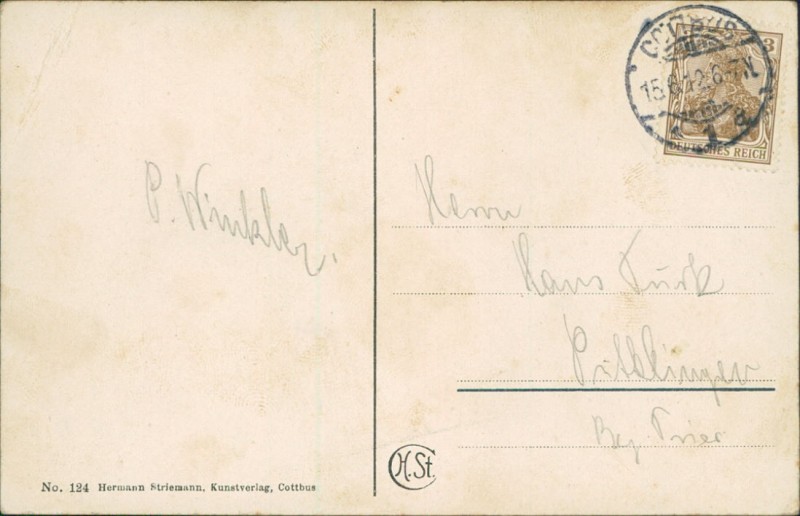 COTTBUS
15.6.12.6-7N
1 d
3
DEUTSCHES REICH
P. Winkler.
Herrn
Hans Türk
Püttlingen
Bez. Trier
H.St.
No. 124 Hermann Striemann, Kunstverlag, Cottbus